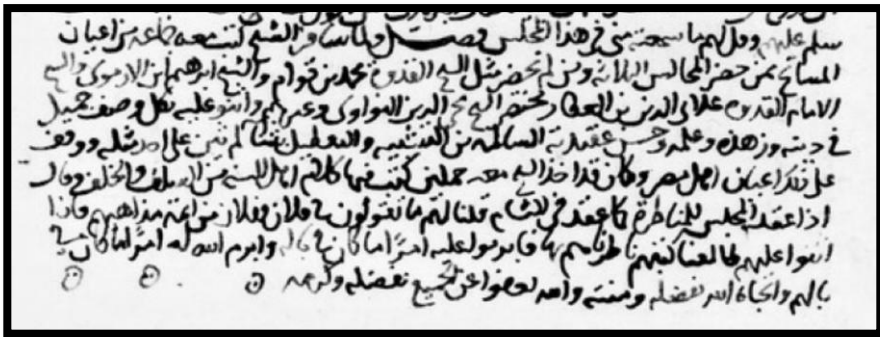 سلم عليهم وقل لهم ما سمعته مني في هذا المجلس فصل ولما سافر الشيخ كتب معه جماعة من اعيان
المشايخ ممن حضر المجالس الثلاثة ومن لم يحضر مثل الشيخ القدوة محمد بن قوام والشيخ ابرهيم ابن الارموي والشيخ
الامام القدوه علاي الدين بن العطار وبحضر الشيخ محي الدين النواوي وغيرهم واثنوا عليه بكل وصف جميل
في دينه وزهده وعلمه وحسن عقيدته السالمة من التشبيه والتعطيل ثناء لم يثن على احد مثله ووقف
على ذلك اعيان اهل مصر وكان قد اخذ الشيخ معه حملتي كتب فيها كلام اهل السنة من السلف والخلف وقال
اذا عقد المجلس للمناظرة كما عقد في الشام قلنا لهم ما تقولون في فلان وفلان من ائمة مذاهبهم فاذا
اثنوا عليهم طالعنا كتبهم ناظرناهم بها فابرموا عليه امرًا ما كان في باله وابرم الله له امرًا ما كان في
بالهم وانجاه الله بفضله ومنته والله يعفوا عن الجميع بفضله وكرمه